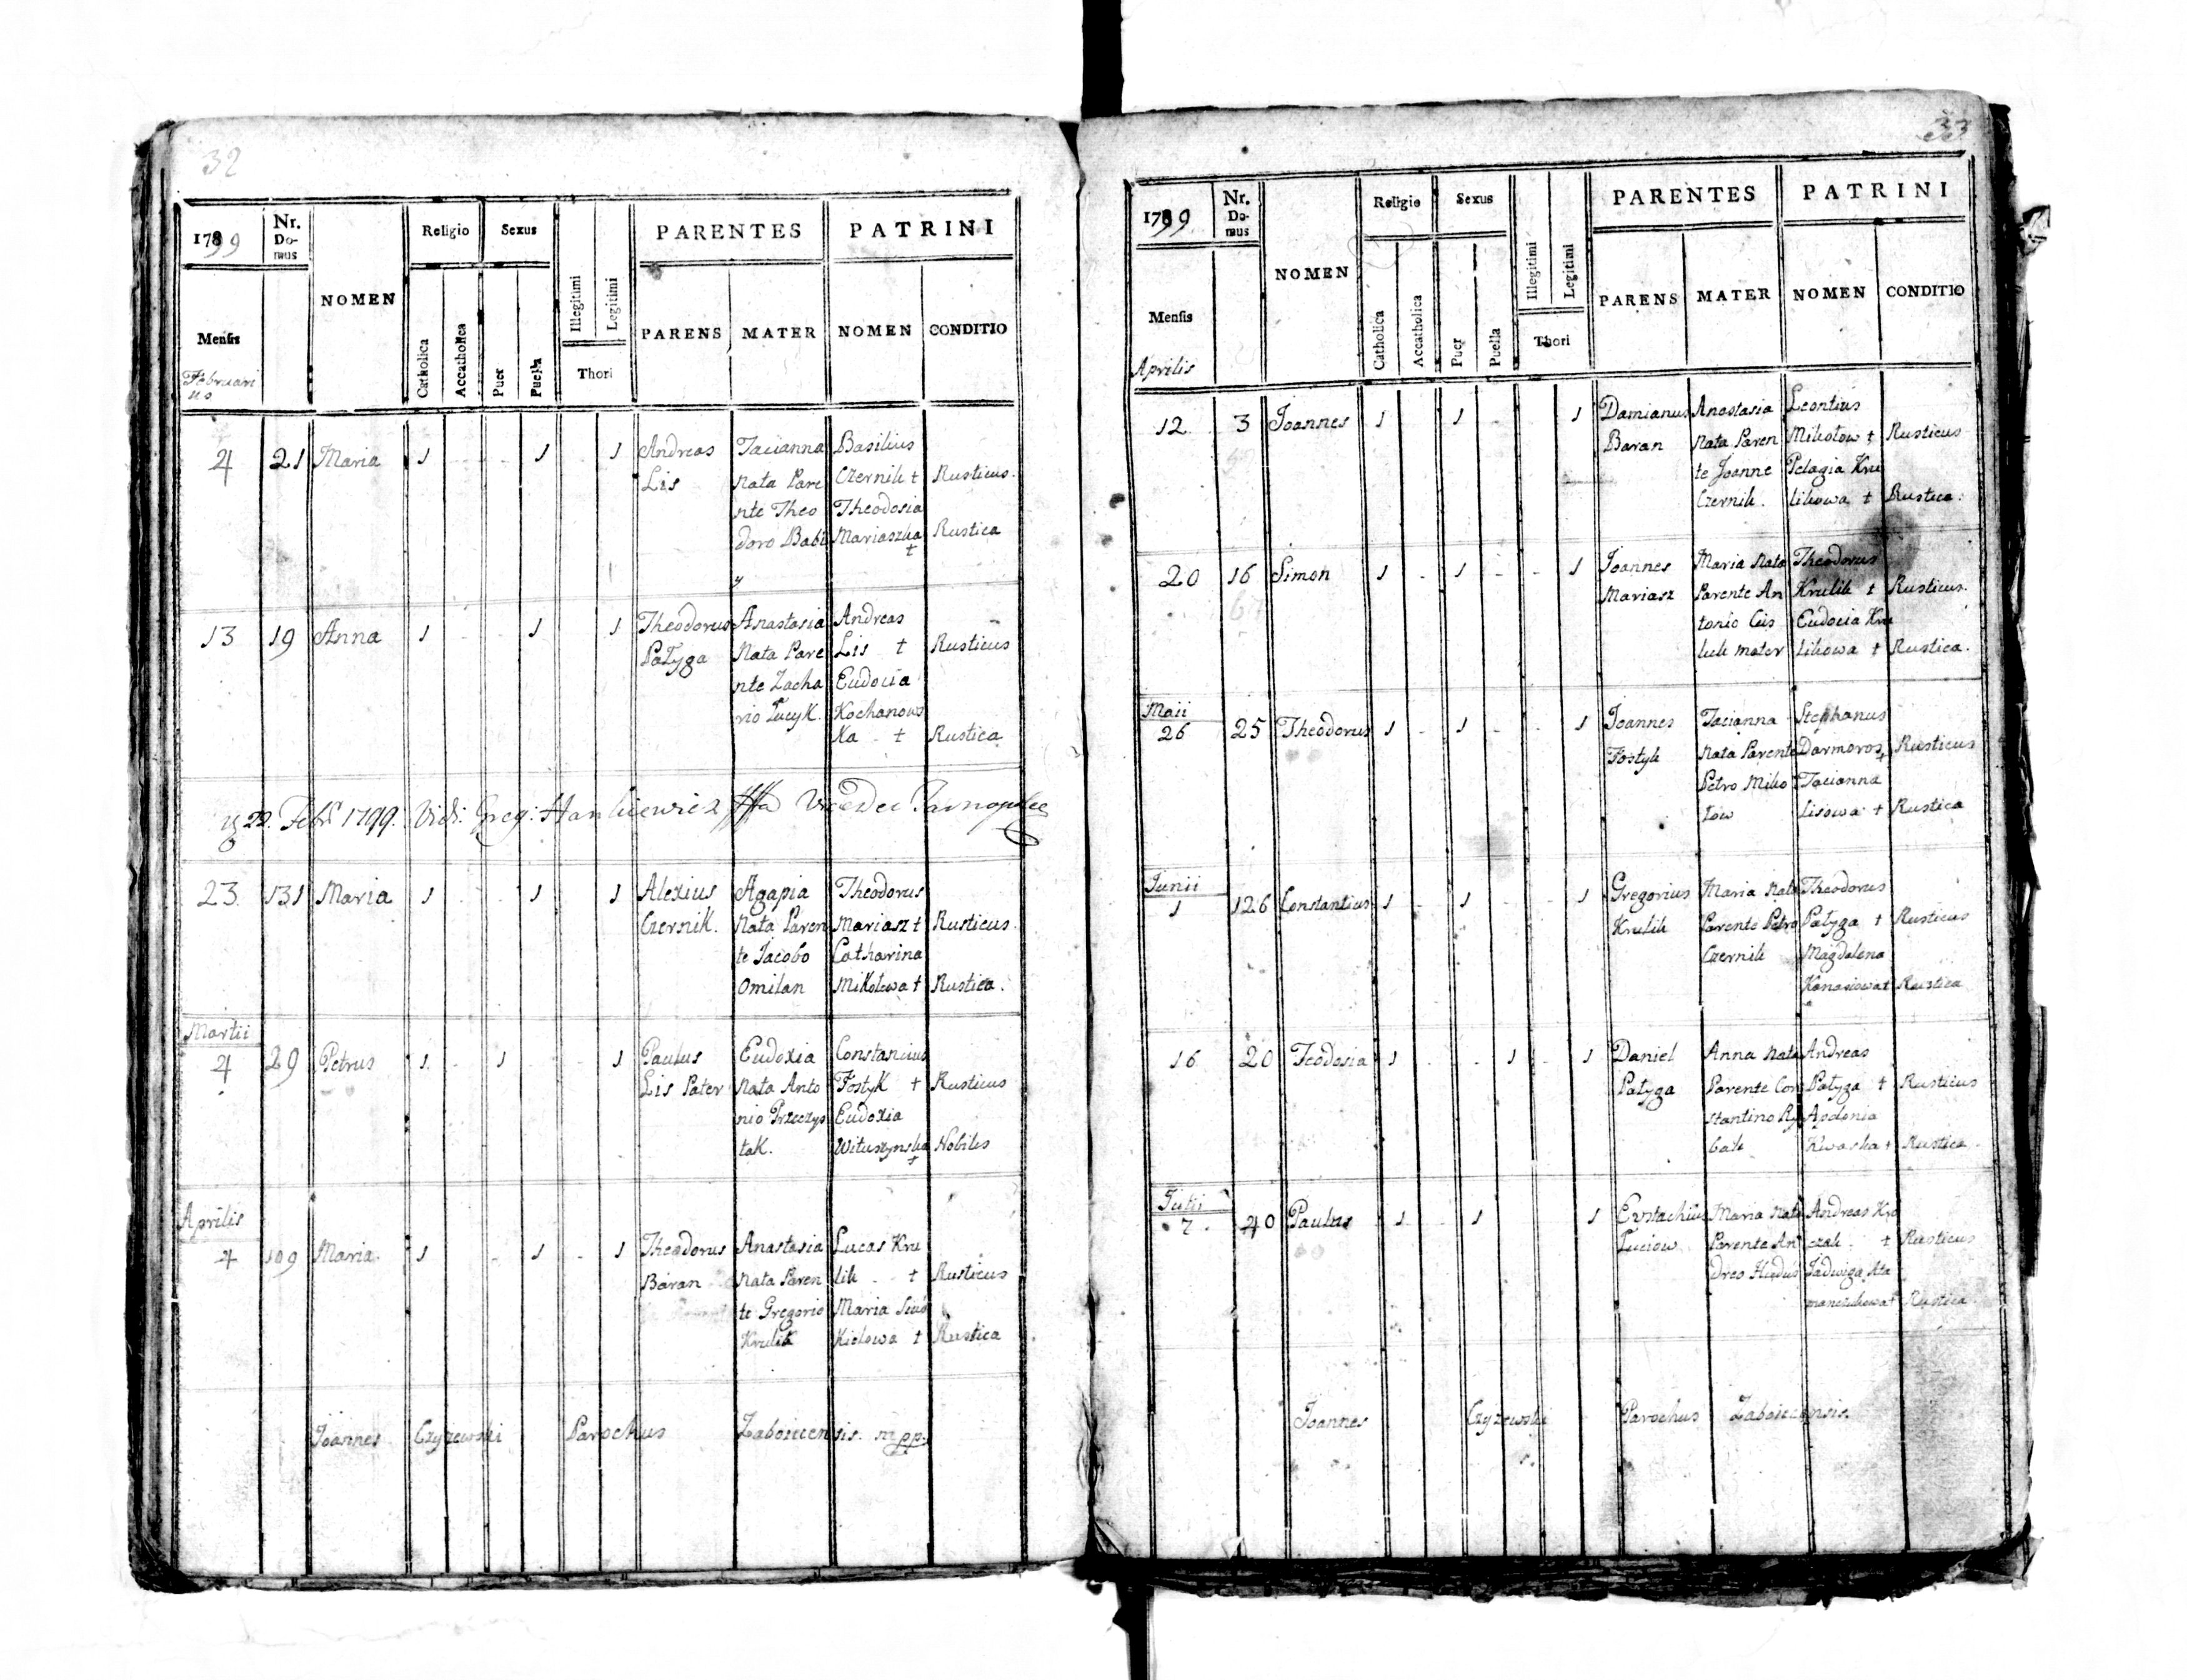 32
1799
Nr. Domus
NOMEN
Religio
Sexus
PARENTES
PATRINI
Mensis
Februarius
Catholica
Accatholica
Puer
Puella
Illegitimi
Legitimi
Thori
PARENS
MATER
NOMEN
CONDITIO
4 21 Maria 1 1 1 Andreas Tacianna Basilius
Lis Nata Pare Czernik + Rusticus.
nte Theo Theodosia
doro Babi Mariaszka + Rustica
y
13 19 Anna 1 1 1 Theodorus Anastasia Andreas
Patyga Nata Pare Lis + Rusticus
nte Zacha Eudocia
rio Łucyk. Kochanows
Ka + Rustica
22. Febr 1799. Vidi: Greg: Hankiewicz
23 131 Maria 1 1 1 Alexius Agapia Theodorus
Czernik. Nata Paren Mariasz + Rusticus.
te Jacobo Catharina
Omilan Mikolowa + Rustica.
Martii
4 29 Petrus 1 1 1 Paulus Eudoxia Constancius
Lis Pater Nata Anto Fostyk + Rusticus
nio Przeczys Eudoxia
tak. Wituszynska + Nobilis
Aprilis
4 109 Maria. 1 1 1 Theodorus Anastasia Lucas Kru
Baran Nata Paren lik + Rusticus
te Gregorio Maria
Krulik Kielowa + Rustica
Joannes Czyzewski Parochus Zaboiecensis. mpp.
33
1799
Nr. Domus
NOMEN
Religio
Sexus
PARENTES
PATRINI
Mensis
Aprilis
Catholica
Accatholica
Puer
Puella
Illegitimi
Legitimi
Thori
PARENS
MATER
NOMEN
CONDITIO
12 3 Joannes 1 1 1 Damianus Anastasia Leontius
Baran Nata Paren Mikolow + Rusticus
te Joanne Pelagia Kru
Czernik. likowa + Rustica.
20 16 Simon 1 1 1 Joannes Maria Nata Theodorus
Mariasz Parente An Krulik + Rusticus.
tonio Eudocia Kru
mater likowa + Rustica.
Maii
26 25 Theodorus 1 1 1 Joannes Tacianna Stephanus
Fostyk Nata Parente Darmoros + Rusticus
Petro Miko Tacianna
low Lisowa + Rustica
Junii
1 126 Constantius 1 1 1 Gregorius Maria Nata Theodorus
Krulik Parente Petro Patyga + Rusticus
Czernik Magdalena
+ Rustica
16 20 Teodosia 1 1 1 Daniel Anna Nata Andreas
Patyga Parente Con Patyga + Rusticus
stantino Ry Apolonia
bak Kwaska + Rustica.
Julii
7. 40 Paulus 1 1 1 Eustachius Maria Nata Andreas
Łuciow Parente An + Rusticus
dreo Jadwiga
+ Rustica
Joannes Czyzewski Parochus Zaboiecensis.